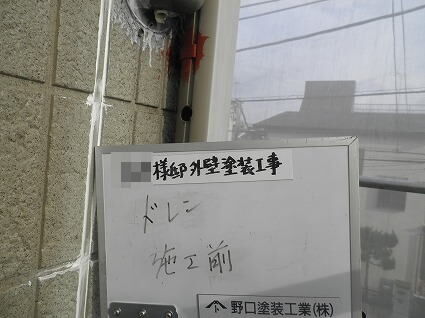 様邸外壁塗装工事
ドレン
施工前
野口塗装工業(株)